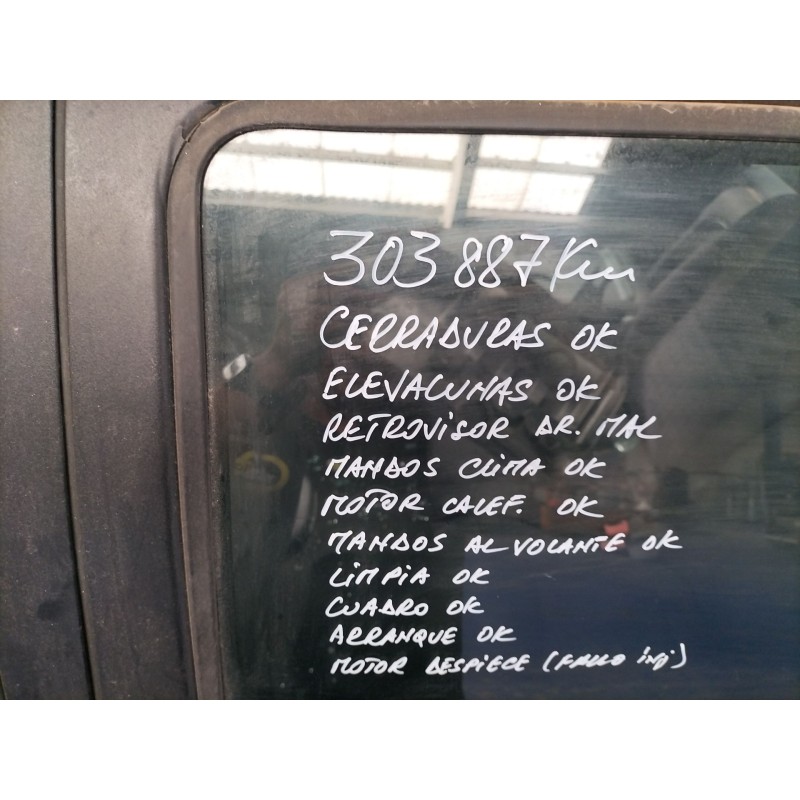 303 887 Km
CERRADURAS OK
ELEVALUNAS OK
RETROVISOR DR. MAL
MANDOS CLIMA OK
MOTOR CALEF. OK
MANDOS AL VOLANTE OK
LIMPIA OK
CUADRO OK
ARRANQUE OK
MOTOR DESPIECE (FALLO inj.)